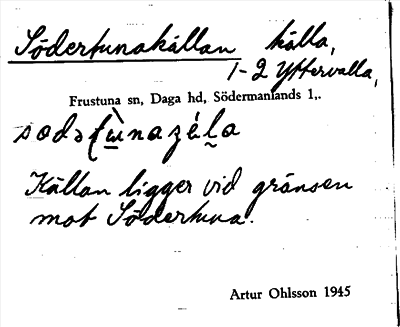 Södertunakällan källa,
1-2 Yttervalla,
Frustuna sn, Daga hd, Södermanlands l,.
Källan ligger vid gränsen
mot Södertuna.
Artur Ohlsson 1945